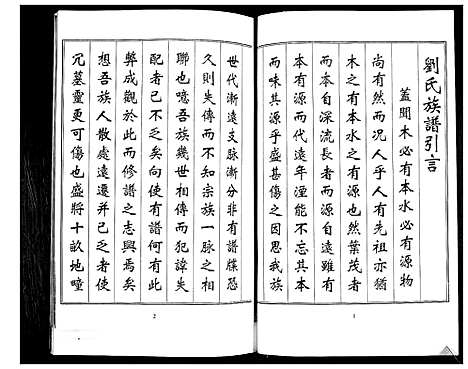 劉氏族譜引言
蓋聞木必有本水必有源物
尚有然而况人乎人有先祖亦猶
木之有本水之有源也然葉茂者
而本自深流長者而源自遠雖有
本有源而代遠年湮能不忘其本
而味其源乎盛甚傷之因思我族
1
世代漸遠支脉漸分非有譜牒恐
久則失傳而不知宗族一脉之相
聯也噫吾族幾世相傳而犯諱失
配者已不乏矣向使有譜何至舛
弊成觀於此而修譜之志興焉矣
想吾族人散處遠遷并已乏者使
冗墓靈更可傷也盛將十畝地疃
2